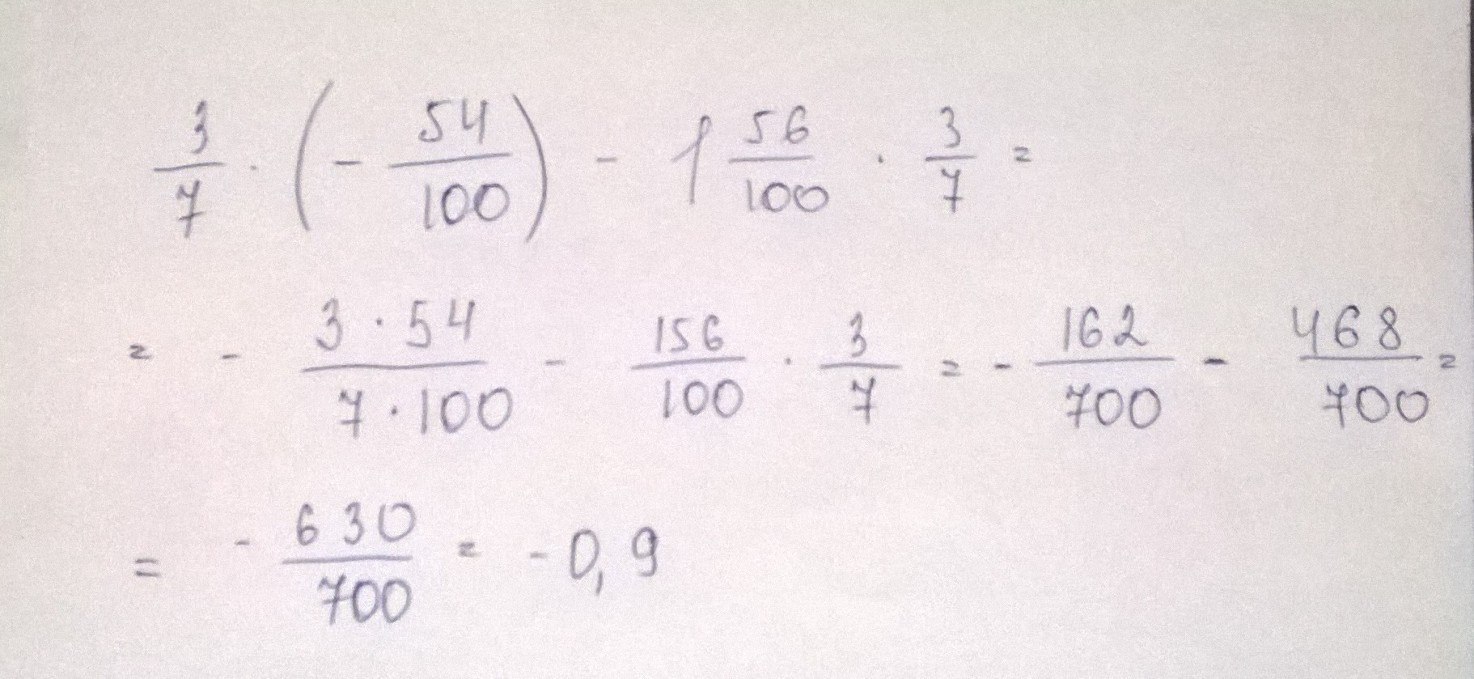 3/7 · (- 54/100) - 1 56/100 · 3/7 =
= - 3 · 54/7 · 100 - 156/100 · 3/7 = - 162/700 - 468/700 =
= - 630/700 = - 0,9